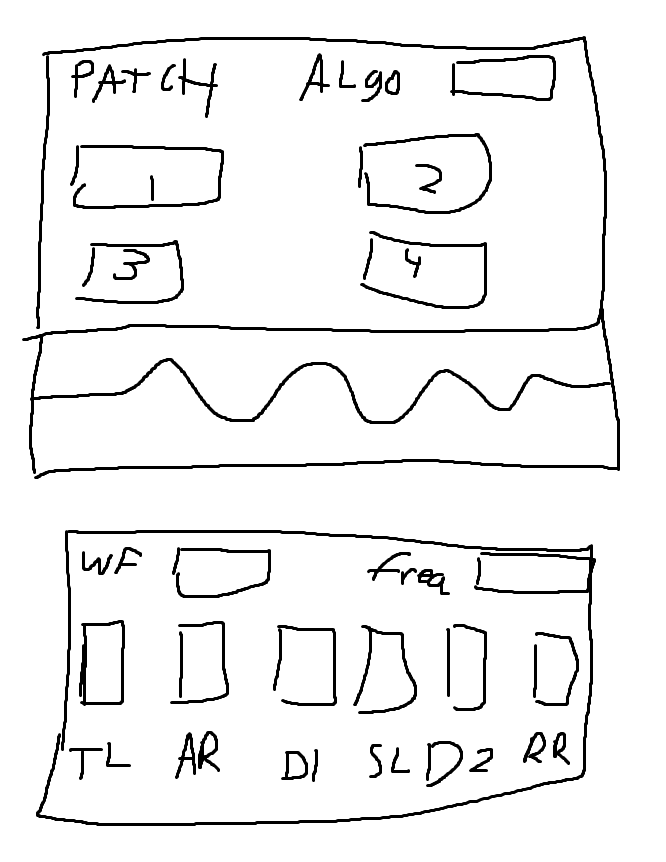 PATCH ALgo
1 2
3 4
WF freq
TL AR D1 SL D2 RR